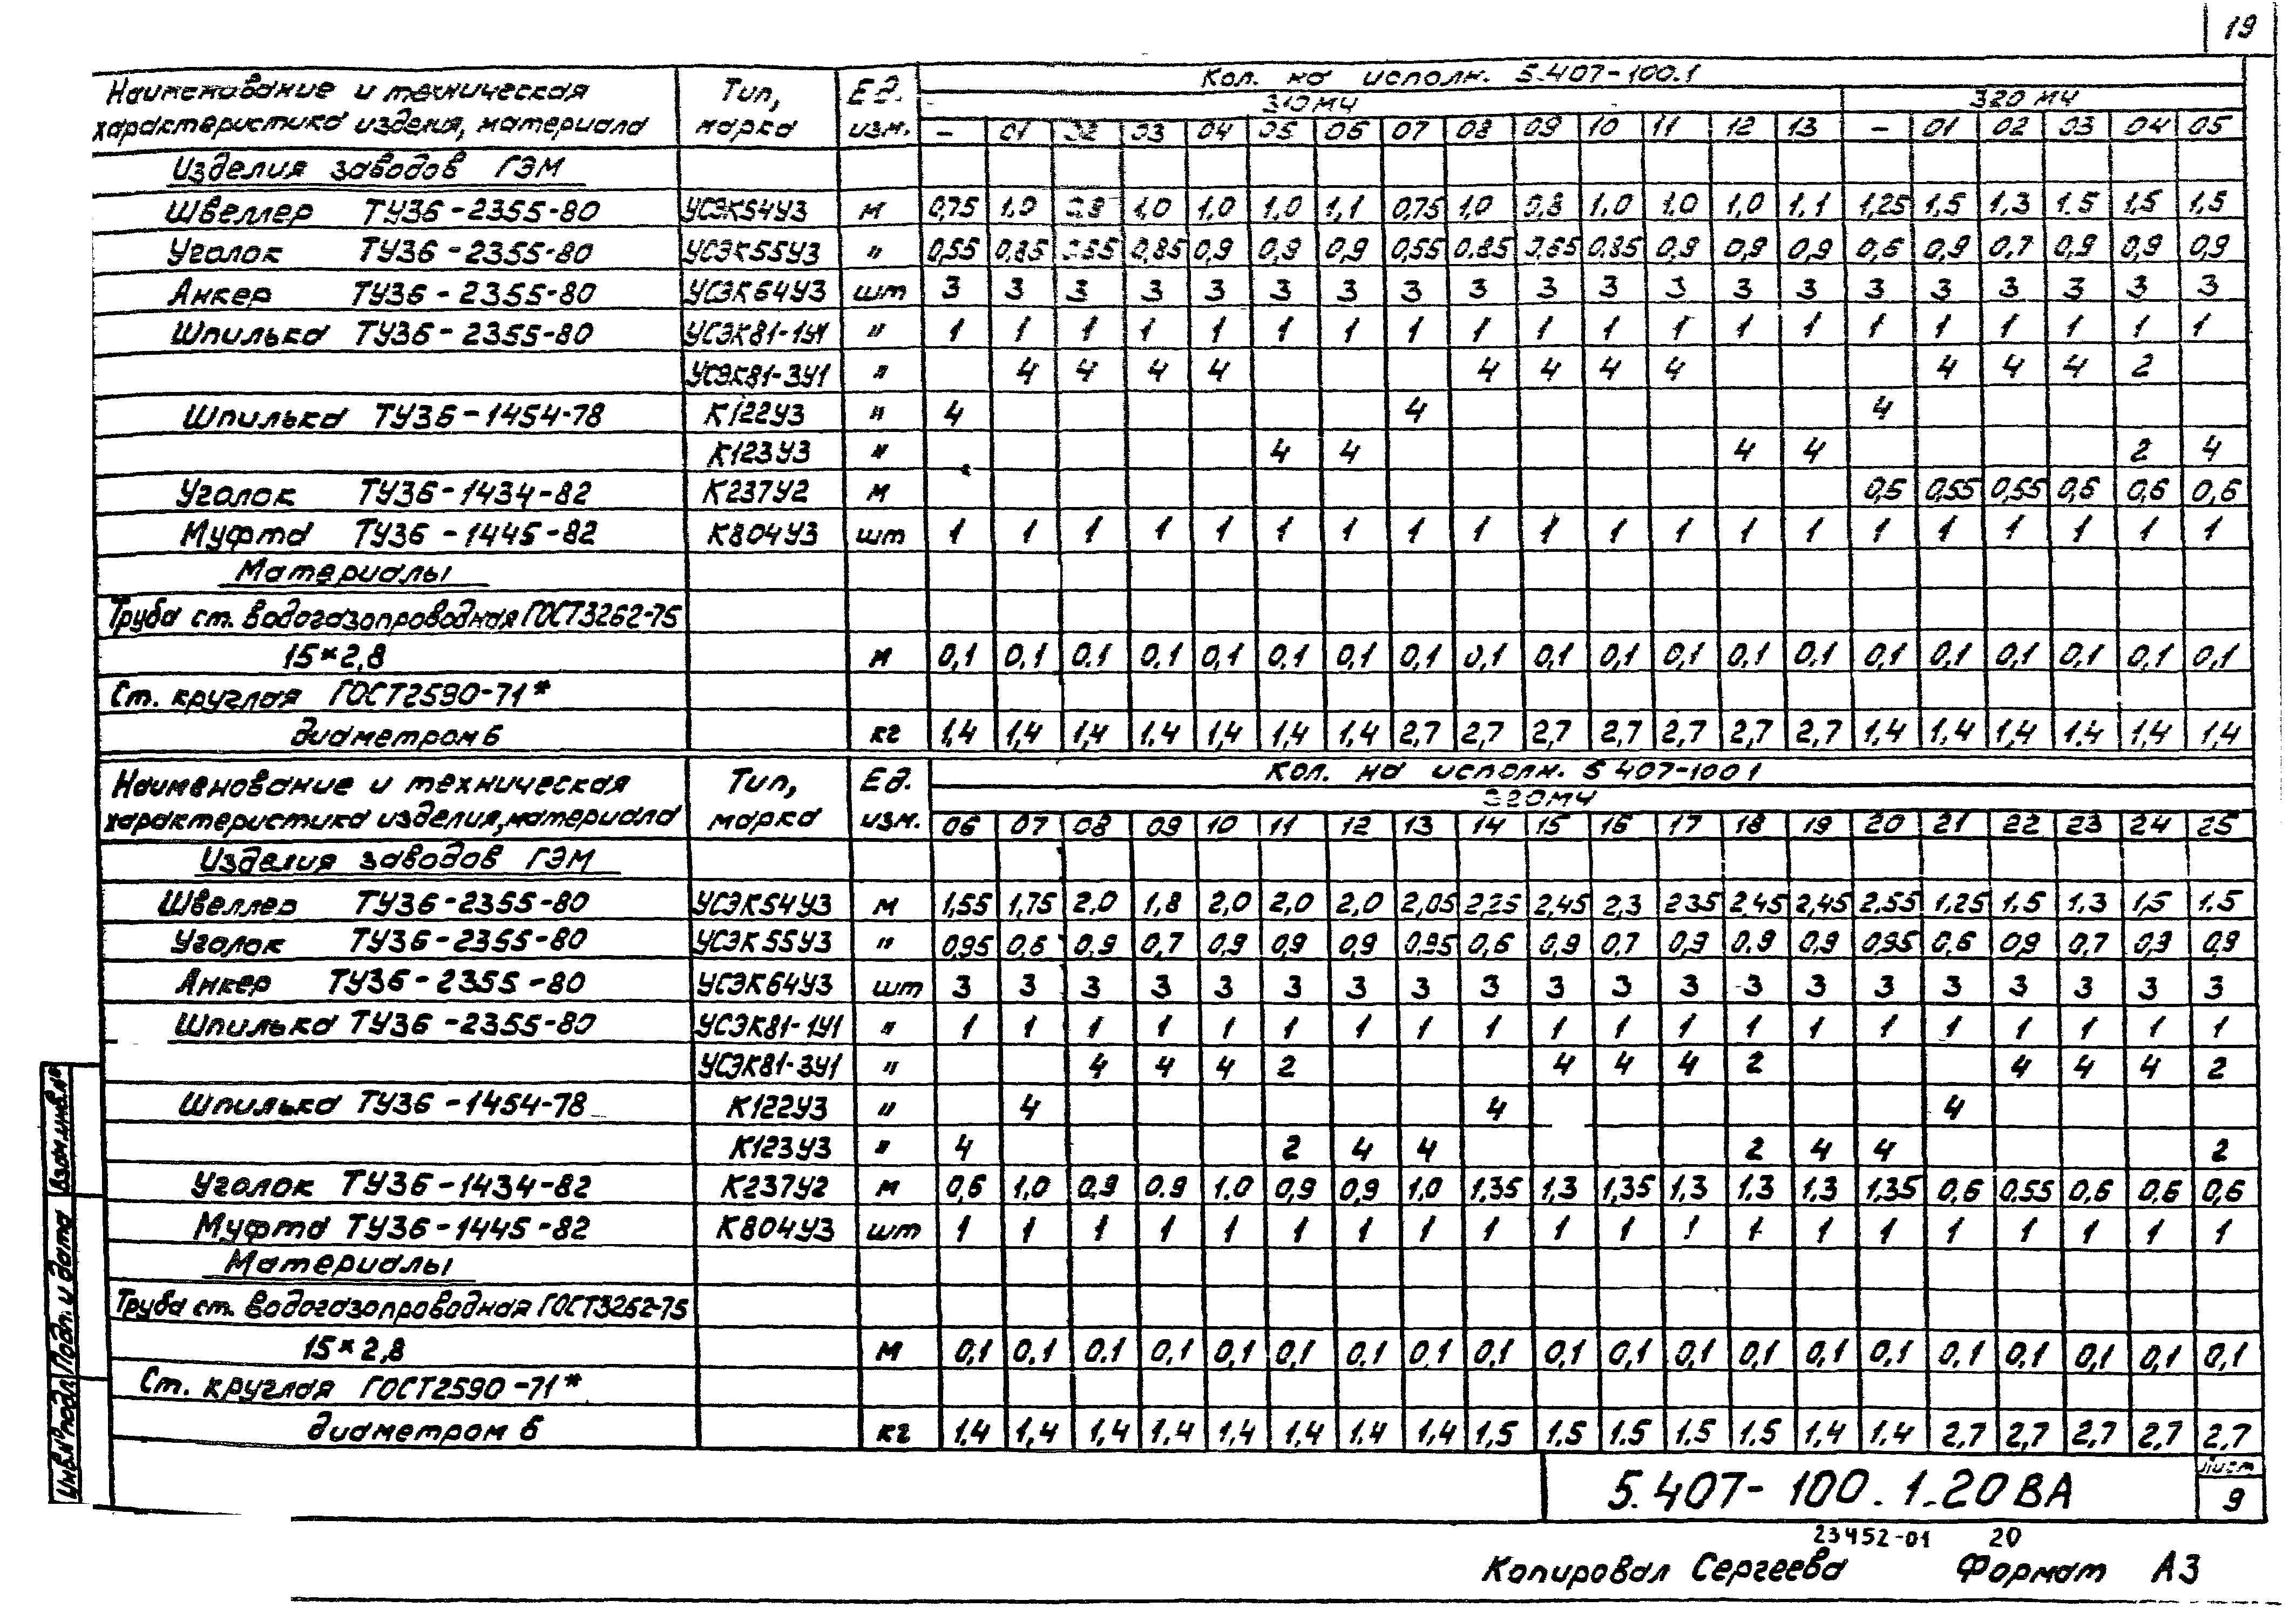 19
Наименование и техническая характеристика изделия, материала | Тип, марка | Ед. изм. | Кол. на исполн. 5.407-100.1
310МЧ | 320МЧ
– 01 02 03 04 05 06 07 08 09 10 11 12 13 – 01 02 03 04 05
Изделия заводов ГЭМ
Швеллер ТУ36-2355-80 УСЭК54У3 м 0,75 1,0 0,8 1,0 1,0 1,0 1,1 0,75 1,0 0,8 1.0 1.0 1,0 1.1 1,25 1,5 1,3 1.5 1,5 1,5
Уголок ТУ36-2355-80 УСЭК55У3 " 0,55 0,85 0,65 0,85 0,9 0,9 0,9 0,55 0.85 0,65 0,85 0,9 0,9 0,9 0,6 0,9 0.7 0,9 0,9 0,9
Анкер ТУ36-2355-80 УСЭК64У3 шт 3 3 3 3 3 3 3 3 3 3 3 3 3 3 3 3 3 3 3 3
Шпилька ТУ36-2355-80 УСЭК81-1У1 " 1 1 1 1 1 1 1 1 1 1 1 1 1 1 1 1 1 1 1 1
УСЭК81-3У1 " 4 4 4 4 4 4 4 4 4 4 4 2
Шпилька ТУ36-1454-78 К122У3 " 4 4 4
К123У3 " 4 4 4 4 2 4
Уголок ТУ36-1434-82 К237У2 м 0,6 0,55 0,55 0,6 0,6 0,6
Муфта ТУ36-1445-82 К804У3 шт 1 1 1 1 1 1 1 1 1 1 1 1 1 1 1 1 1 1 1 1
Материалы
Труба ст. водогазопроводная ГОСТ3262-75
15×2,8 м 0,1 0,1 0.1 0,1 0,1 0,1 0,1 0,1 0,1 0,1 0,1 0,1 0,1 0,1 0,1 0,1 0,1 0,1 0,1 0,1
Ст. круглая ГОСТ2590-71*
диаметром 6 кг 1,4 1,4 1,4 1.4 1,4 1,4 1.4 2,7 2,7 2,7 2,7 2,7 2,7 2,7 1.4 1,4 1,4 1.4 1,4 1,4
Наименование и техническая характеристика изделия, материала | Тип, марка | Ед. изм. | Кол. на исполн. 5 407-100 1
320МЧ
06 07 08 09 10 11 12 13 14 15 16 17 18 19 20 21 22 23 24 25
Изделия заводов ГЭМ
Швеллер ТУ36-2355-80 УСЭК54У3 м 1,55 1,75 2.0 1,8 2,0 2,0 2,0 2,05 2,25 2,45 2,3 2 35 2,45 2,45 2.55 1,25 1.5 1.3 1,5 1.5
Уголок ТУ36-2355-80 УСЭК55У3 " 0,95 0,6 0,9 0,7 0,9 0,9 0,9 0,95 0,6 0,9 0,7 0,9 0.9 0,9 0,95 0,6 0,9 0,7 0,9 0,9
Анкер ТУ36-2355-80 УСЭК64У3 шт 3 3 3 3 3 3 3 3 3 3 3 3 3 3 3 3 3 3 3 3
Шпилька ТУ36-2355-80 УСЭК81-1У1 " 1 1 1 1 1 1 1 1 1 1 1 1 1 1 1 1 1 1 1 1
УСЭК81-3У1 " 4 4 4 2 4 4 4 2 4 4 4 2
Шпилька ТУ36-1454-78 К122У3 " 4 4 4
К123У3 " 4 2 4 4 2 4 4 2
Уголок ТУ36-1434-82 К237У2 м 0,6 1,0 0,9 0.9 1.0 0,9 0,9 1.0 1,35 1,3 1,35 1,3 1.3 1.3 1,35 0,6 0.55 0,6 0,6 0,6
Муфта ТУ36-1445-82 К804У3 шт 1 1 1 1 1 1 1 1 1 1 1 1 1 1 1 1 1 1 1 1
Материалы
Труба ст. водогазопроводная ГОСТ3262-75
15×2,8 м 0,1 0,1 0.1 0,1 0,1 0,1 0,1 0,1 0,1 0,1 0,1 0,1 0,1 0,1 0,1 0,1 0,1 0,1 0,1 0,1
Ст. круглая ГОСТ2590-71*
диаметром 6 кг 1.4 1,4 1,4 1.4 1,4 1,4 1.4 1,4 1,5 1.5 1.5 1.5 1.5 1,4 1.4 2,7 2,7 2,7 2,7 2,7
Инв.№ подл. Подп. и дата Взам.инв.№
5.407-100.1-20ВА
Лист
9
23452-01 20
Копировал Сергеева Формат А3